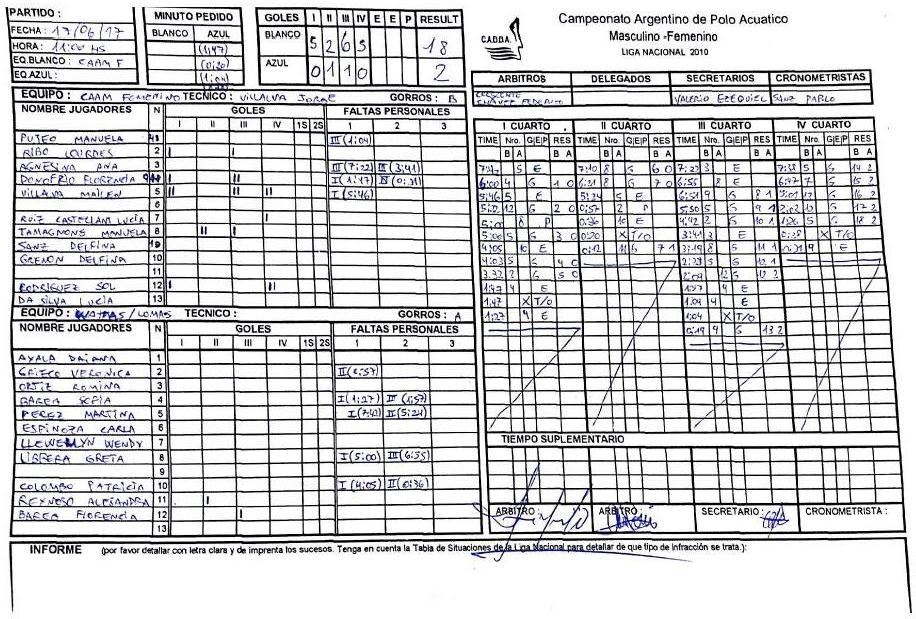 PARTIDO :
FECHA : 17/06/17
HORA : 11:00 HS
EQ.BLANCO : CAAM F
EQ.AZUL :
MINUTO PEDIDO
BLANCO AZUL
(1:47)
(0:20)
(1:04)
GOLES I II III IV E E P RESULT
BLANCO 5 2 6 5 18
AZUL 0 1 1 0 2
C.A.D.D.A.
Campeonato Argentino de Polo Acuatico
Masculino -Femenino
LIGA NACIONAL 2010
ARBITROS DELEGADOS SECRETARIOS CRONOMETRISTAS
CHAVEZ FEDERICO VALERIO EZEQUIEL SANZ PABLO
EQUIPO : CAAM FEMENINO TECNICO : VILLALVA JORGE GORROS : B
NOMBRE JUGADORES N GOLES FALTAS PERSONALES
I II III IV 1S 2S 1 2 3
PUTEO MANUELA 1 III (1:04)
RIBO LOURDES 2
AGNESINA ANA 3 III (7:22) III (3:41)
DONOFRIO FLORENCIA I (1:47) IV (0:31)
VILLALVA MAILEN 5 I (5:46)
6
RUIZ CASTELLANI LUCÍA 7
TAMAGNONS MANUELA 8
SANZ DELFINA
GRENON DELFINA 10
11
RODRIGUEZ SOL 12
DA SILVA LUCÍA 13
EQUIPO : WATPAS/LOMAS TECNICO : GORROS : A
NOMBRE JUGADORES N GOLES FALTAS PERSONALES
I II III IV 1S 2S 1 2 3
AYALA DAIANA 1
GRIECO VERONICA 2 II (0:57)
ORTIZ ROMINA 3
BAREA SOFIA 4 I (1:27) III (1:57)
PEREZ MARTINA 5 I (7:42) II (5:24)
ESPINOZA CARLA 6
LLEWELLYN WENDY 7
LIBRERA GRETA 8 I (5:00) III (6:55)
9
COLOMBO PATRICIA 10 I (4:05) II (0:36)
REYNOSO ALEJANDRA 11
BAREA FLORENCIA 12
13
I CUARTO II CUARTO III CUARTO IV CUARTO
TIME Nro. G|E|P RES TIME Nro. G|E|P RES TIME Nro. G|E|P RES TIME Nro. G|E|P RES
B A B A B A B A B A B A B A B A
5 E 7:10 8 G 6 0 7:22 3 E 7:38 5 G 14 2
6:00 4 G 1 0 6:31 8 G 7 0 6:55 8 E 6:47 7 G 15 2
5:46 5 E 5:24 5 E 9 G 8 1 5:01 G 16 2
5:12 12 G 2 0 0:57 2 P 5:30 5 G 9 1 2:02 G 17 2
8 P 0:36 10 E 4:42 2 G 10 1 1:26 5 G 18 2
5:00 5 G 3 0 0:20 X T/O 3:41 3 E 0:38 X T/O
4:05 10 E 0:12 11 G 7 1 3:19 8 G 11 1 0:31 9 E
4:03 5 G 4 0 2:39 5 G 12 1
3:32 2 G 5 0 2:09 12 G 12 2
1:47 9 E 1:57 4 E
1:47 X T/O 1:04 9 E
1:27 4 E 1:04 X T/O
0:19 9 G 13 2
TIEMPO SUPLEMENTARIO
ARBITRO : ARBITRO : SECRETARIO : CRONOMETRISTA :
INFORME (por favor detallar con letra clara y de imprenta los sucesos. Tenga en cuenta la Tabla de Situaciones de la Liga Nacional para detallar de que tipo de infracción se trata.):